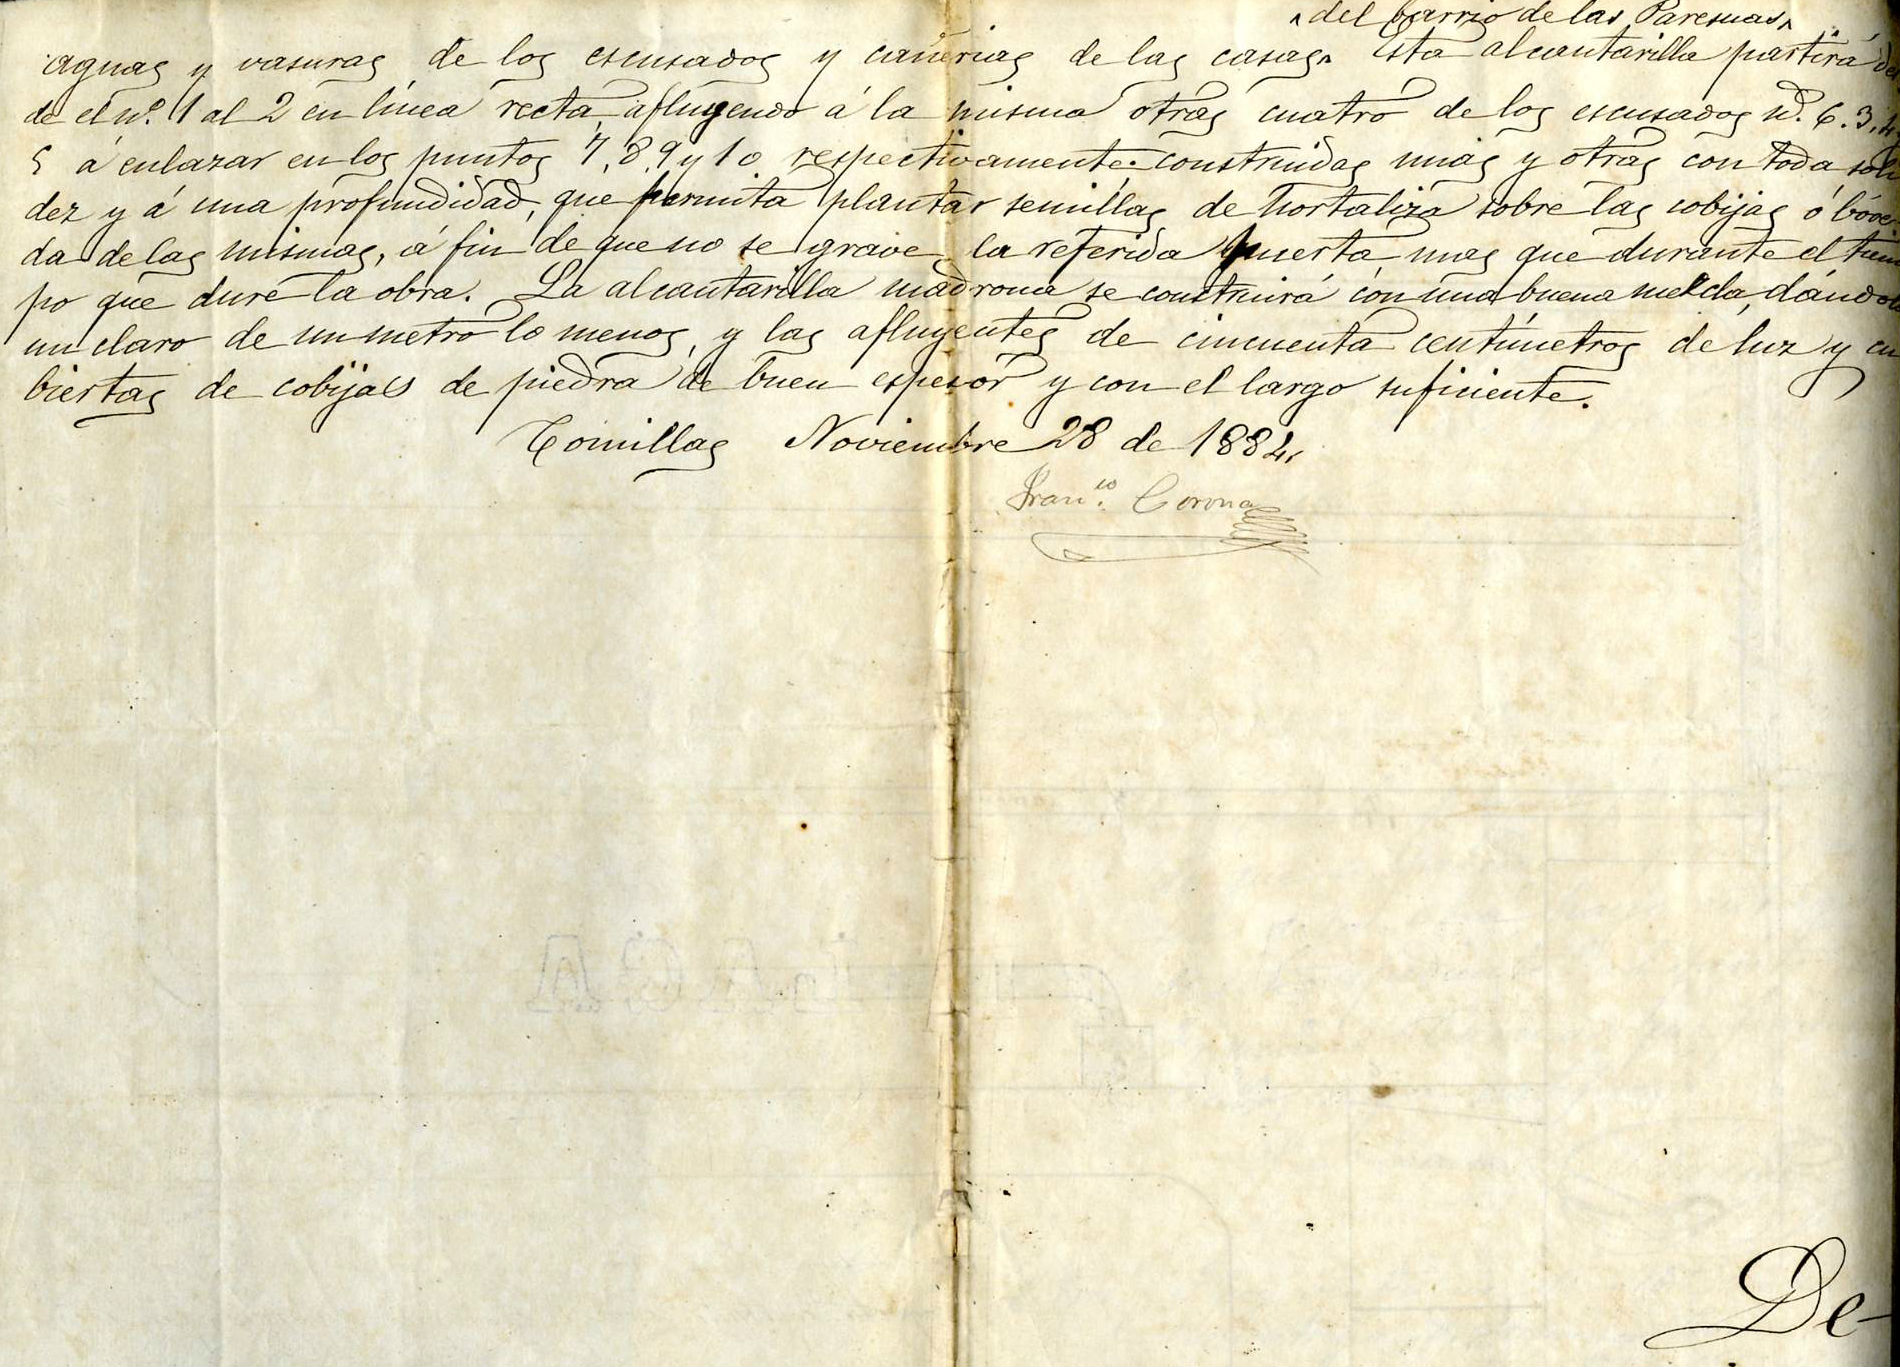 del barrio de las
aguas y vasuras de los escusados y cañerias de las casas. Esta alcantarilla partirá des
de el nº. 1 al 2 en línea recta, afluyendo á la misma otras cuatro de los escusados nº. 6. 3. 4.
5 á enlazar en los puntos 7, 8, 9 y 10 respectivamente: construidas unas y otras con toda soli
dez y á una profundidad, que permita plantar semillas de hortaliza sobre las cobijas ó bóve
da de las mismas, á fin de que no se grave la referida huerta mas que durante el tiem
po que dure la obra. La alcantarilla madrona se construirá con una buena mezcla, dándole
un claro de un metro lo menos, y las afluyentes de cincuenta centímetros de luz y cu
biertas de cobijas de piedra de buen espesor y con el largo suficiente.
Comillas Noviembre 28 de 1884.
Franco. Corona
De-